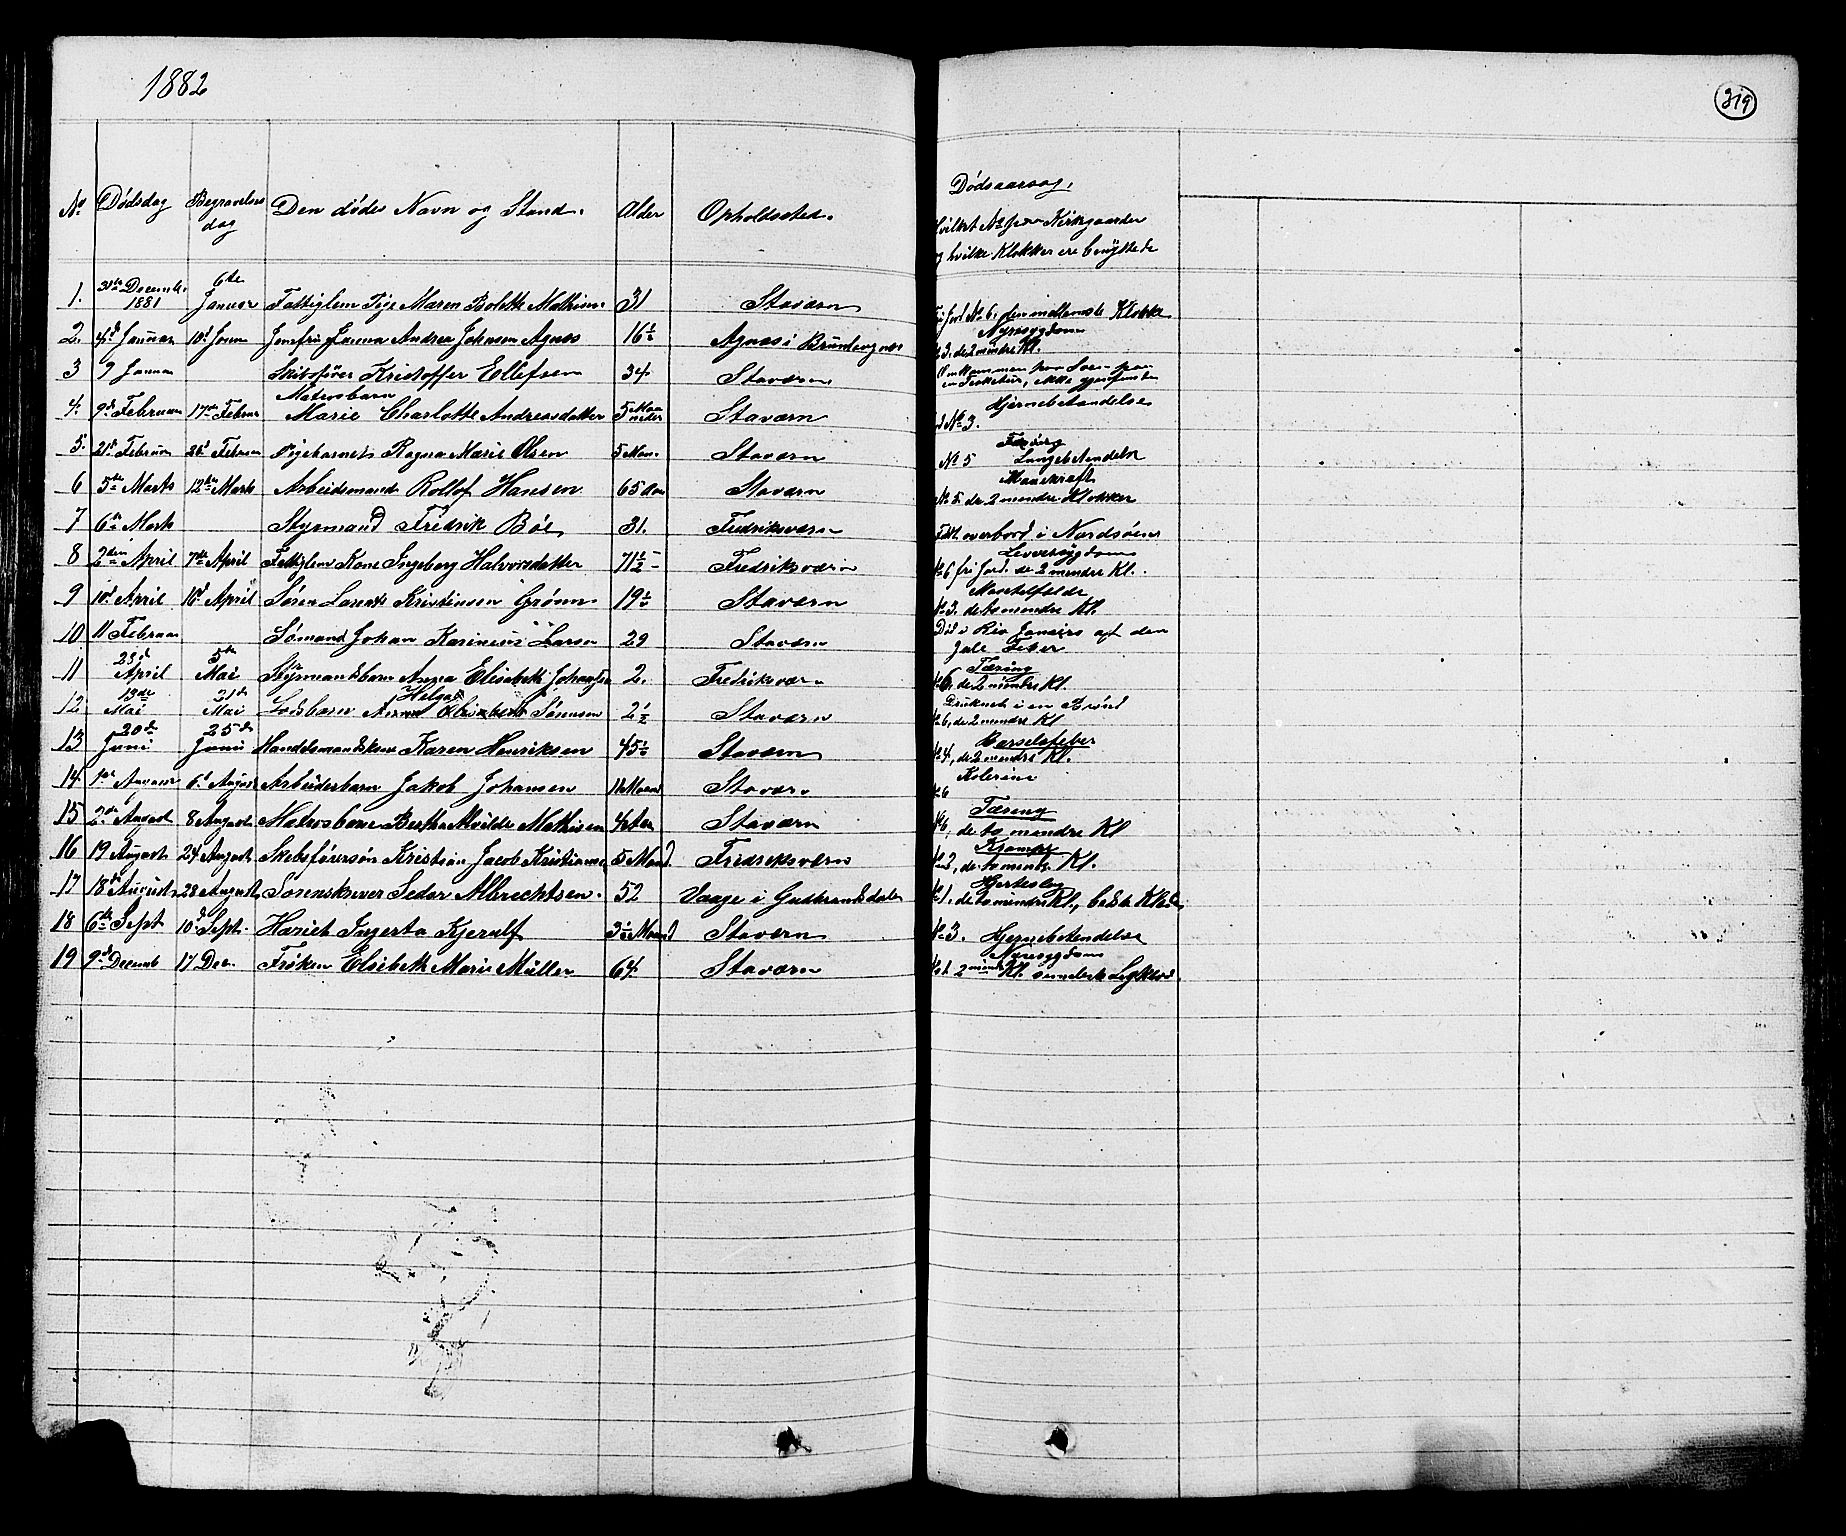 1882
319
No Dødsdag Begravelses dag Den dødes Navn og Stand. Alder Opholdssted. Dødsaarsag,
hvilket No paa Kirkegaarden
og hvilke Klokker ere benyttede
1. 31te Decemb. 1881 6te Januar Fattiglem Pige Maren Bolette Mathisen 31 Staværn fri Jord No 6. den mellemste Klokke
2. 4d Januar 10d Janu Jomfru Hanna Andrea Johnsen Agnæs 16½ Agnæs i Brunlangnæs Nyresygdom
3. de 2 mindre Kl.
3 9 Januar Skibsfører Kristoffer Ellefsen 34 Staværn Omkommen paa Søen paa
en Fisketur, ikke gjenfunden
4. 9d Februar 17de Februar Matrosbarn
Marie Charlotte Andreasdatter 5 Maaneder Staværn Hjernebetændelse
No 3.
5. 21d Februar 26d Februar Pigebarnets Ragna Marie Olsen 5 Maan. Staværn
No 5 Lungebetændelse
6 5te Marts 12te Marts Arbeidsmand Rollof Hansen 65 Aar Staværn Mavekræft
No 5. de 2 mindre Klokker
7 6te Marts Styrmand Fredrik Böe 31. Fredriksværn Faldt overbord i Nordsöen
8 2den April 7de April Fattiglem Kone Ingeborg Halvorsdatter 71½ Fredriksværn Leversygdom
No 6 fri Jord. de 2 mindre Kl.
9 10d April 16d April Søren Laurits Kristiansen Grönn 19½ Staværn
No 3. de to mindre Kl.
10. 11 Februar Sømand Johan Karinius Larsen 29 Staværn Död i Rio Janeiro af den
gule Feber
11 23d April 5te Mai Styrmandsbarn Anna Elisabeth Johansen 2. Fredriksværn Tæring
No 6, de 2 mindre Kl.
12. 13de Mai 21d Mai Lodsbarn Helga Sörensen 2½ Staværn Druknet i en Brönd
No 6, de 2 mindre Kl
13 20de Juni 25de Juni Handelsmandskone Karen Henriksen 45½ Staværn Barselsfeber
No 4, de 2 mindre Kl.
14. 1ste August 6d August Arbeiderbarn Jakob Johansen 11 Maan Staværn Kolerine
No 6
15 2den August 8 August Matrosbarn Bertha Mathilde Mathisen 4 Aar Staværn Tæring
No 6, de to mindre Kl
16 19 August 24 August Skibsførersön Kristian Jacob Kristiansen 5 Maand. Fredriksværn Krampe
No 2, de to mindre Kl.
17 18de August 28 August Sorenskriver Peder Albrechtsen. 52 Vaage i Gudbrandsdalen Hjerteslag
No 1. de to mindre Kl., bedste Klæde
18 6te Sept 10d Sept. Hariet Ingerta Kjerulf 3½ Maand Staværn No 3. Hjernebetændelse
19 9de Decemb 17 Dec. Frøken Elisbeth Marie Müller 64 Staværn Nyresygdom
No 1. 2 mindre Kl. simpelste Ligklæde